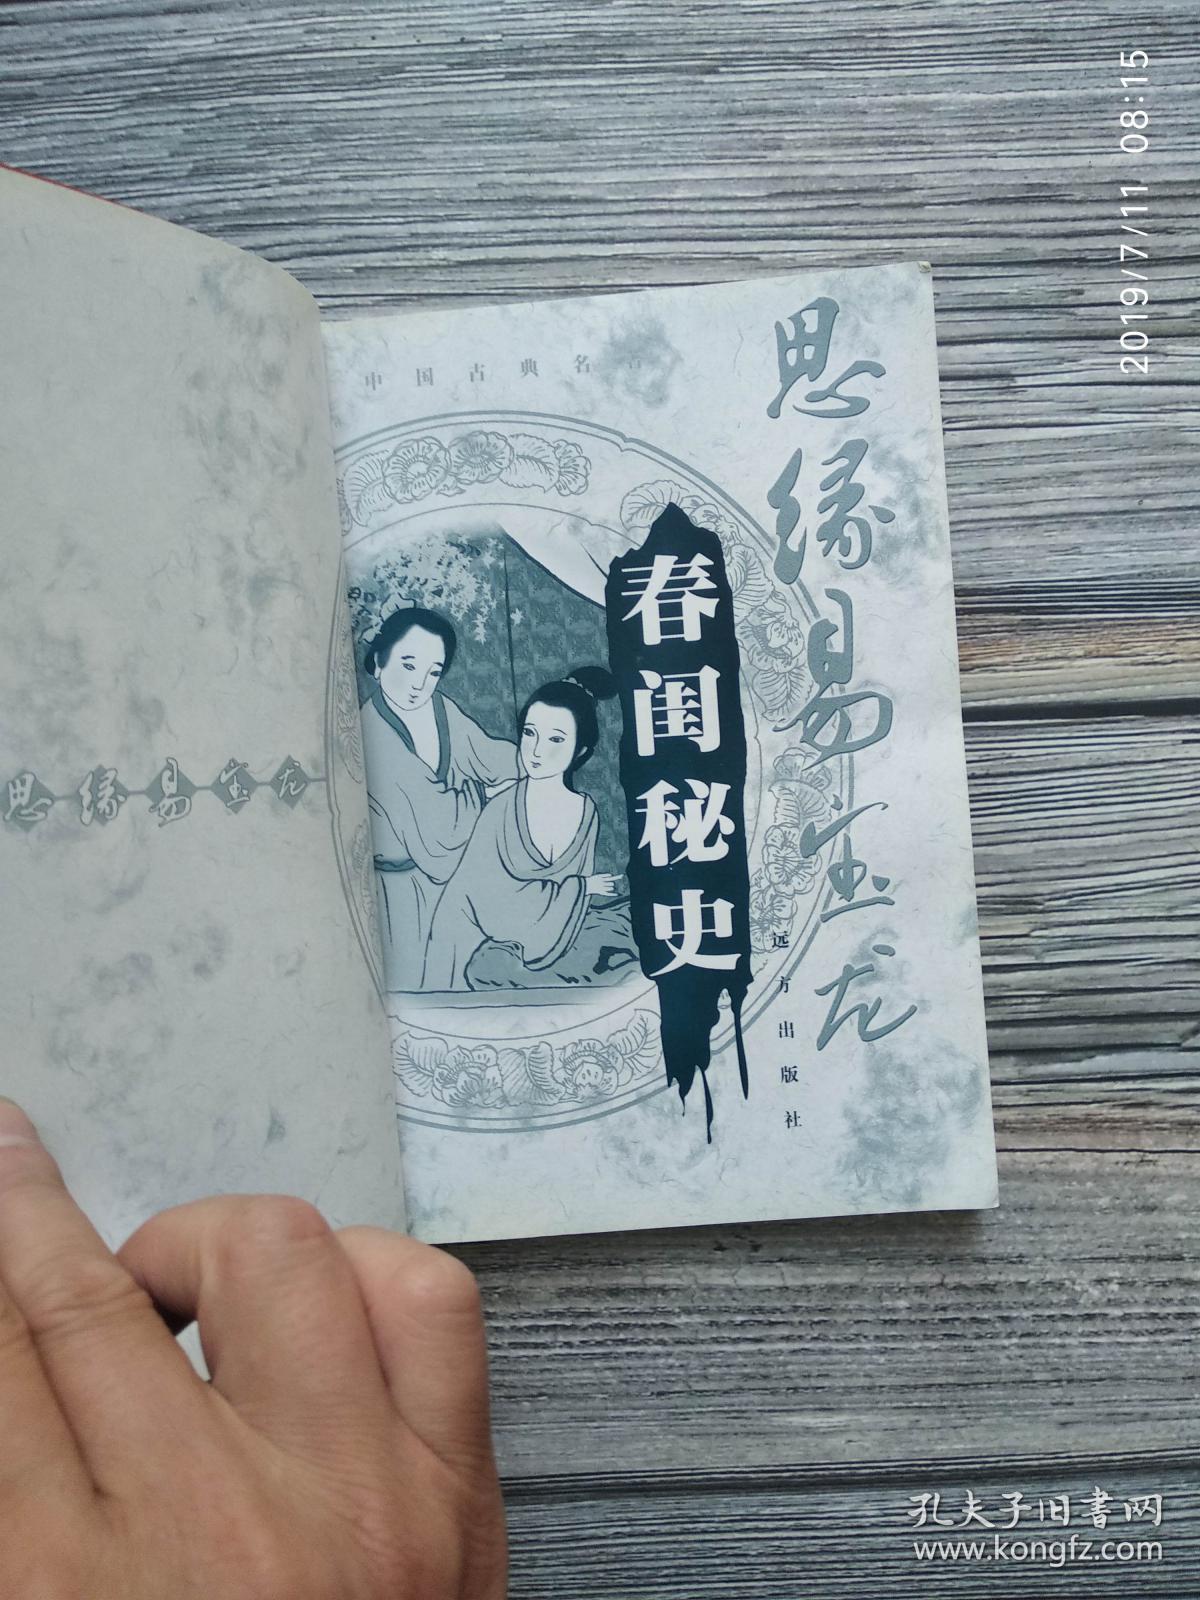 2019/7/11 08:15
中国古典名
思缘易宝龙
春闺秘史
远方出版社
思缘易宝龙
孔夫子旧書网
www.kongfz.com